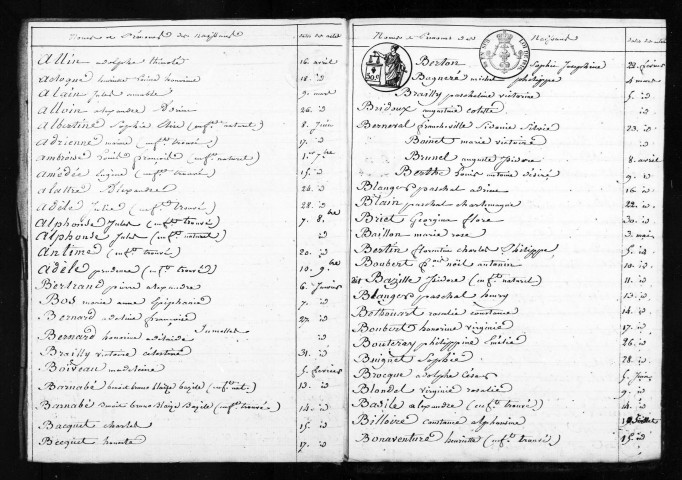 Noms et Prénoms des Naissans
Dates des actes
Allin adolphe 16 avril
18 id
Alain Jules aimable 9 mai
Alloin alexandre 26 id
Albertine Sophie (enf.t naturel) 8 Juin
Adrienne marie (enf.t trouvé) 17 id
Ambroise Louis (enf.t naturel) 1er 7bre
Amédée Eugène (enf.t trouvé) 15 id
Alastre Alexandre 24 id
Adèle Julie (enf.t trouvé) 28 id
Alphonse Jules (enf.t trouvé) 7 8bre
Alphonse Jules (enf.t naturel) id
Antime (enf.t trouvé) 20 id
Adèle prudence (enf.t trouvé) 10 9bre
Bertrand pierre alexandre 6 Janvier
Bos marie anne Epiphanie 7 id
Bernard adeline françoise 27 id
Bernard honorine adélaïde Jumelles id
Brailly victoire célestine 31 id
Boiveau madeleine 5 février
Barnabé Blaize Bazile (enf.t nat.) 13 id
Barnabé Benoite bruno Blaize Bazile (enf.t trouvé) 14 id
Bacquet charles 15 id
Becquet 17 id
Noms et Prénoms des Naissans
Dates des actes
Berton Sophie Joséphine 22 février
Bagneré michel philippe 4 mars
Brailly paschaline victorine 5 id
Bridoux augustine colette id
Berneval francheville Sidonie Silvie 23 id
Boinet marie victoire id
Brunel auguste Isidore 8 avril
Berthe Louis antoine désiré 9 id
Blanger paschal 16 id
Bilain paschal charlemagne 22 id
Briet Georgina flore 30 id
Baillon marie rose 3 mai
Bertin florentin charles Philippe 5 id
Boubert noël antonin 10 id
dit Bazille Isidore (enf.t naturel) 11 id
Blanger paschal henry 13 id
Bethouart rosalie constance 14 id
Boubert honorine virginie 17 id
Bouterey philippine 26 id
Buignet Sophie 28 id
Brocque adolphe César 5 Juin
Blondel virginie rosalie 9 id
Basile alexandre (enf.t trouvé) 14 id
Billoire constance alphonsine 12 Juillet
Bonaventure henriette (enf.t trouvé) 15 id